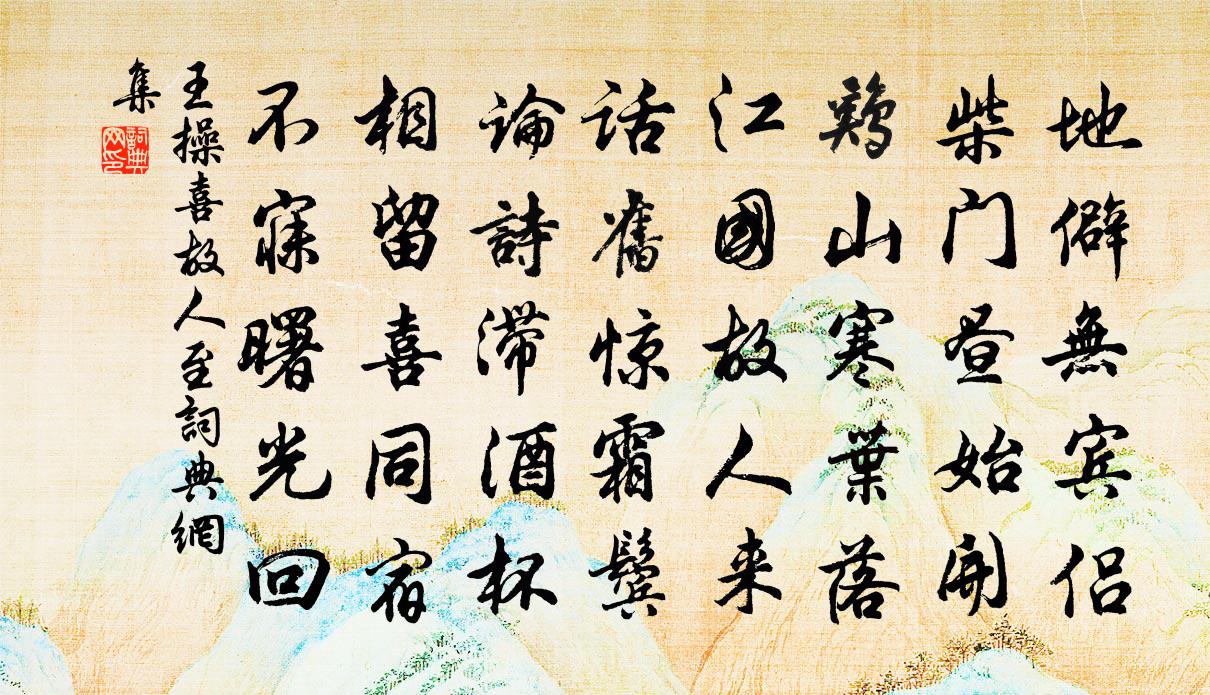 地僻無宾侣
柴门昼始開
鷄山寒葉落
江國故人来
话舊惊霜鬓
論詩滞酒杯
相留喜同宿
不寐曙光回
王操喜故人至詞典網
集
詞典网印